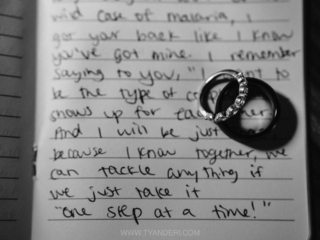 wild case of malaria, I
got your back like I know
you've got mine. I remember
saying to you, "I to
be the type of
shows up for
And I will be just
because I know together, we
can tackle anything if
we just take it
"one step at a time!"
WWW.TYANDEHI.COM